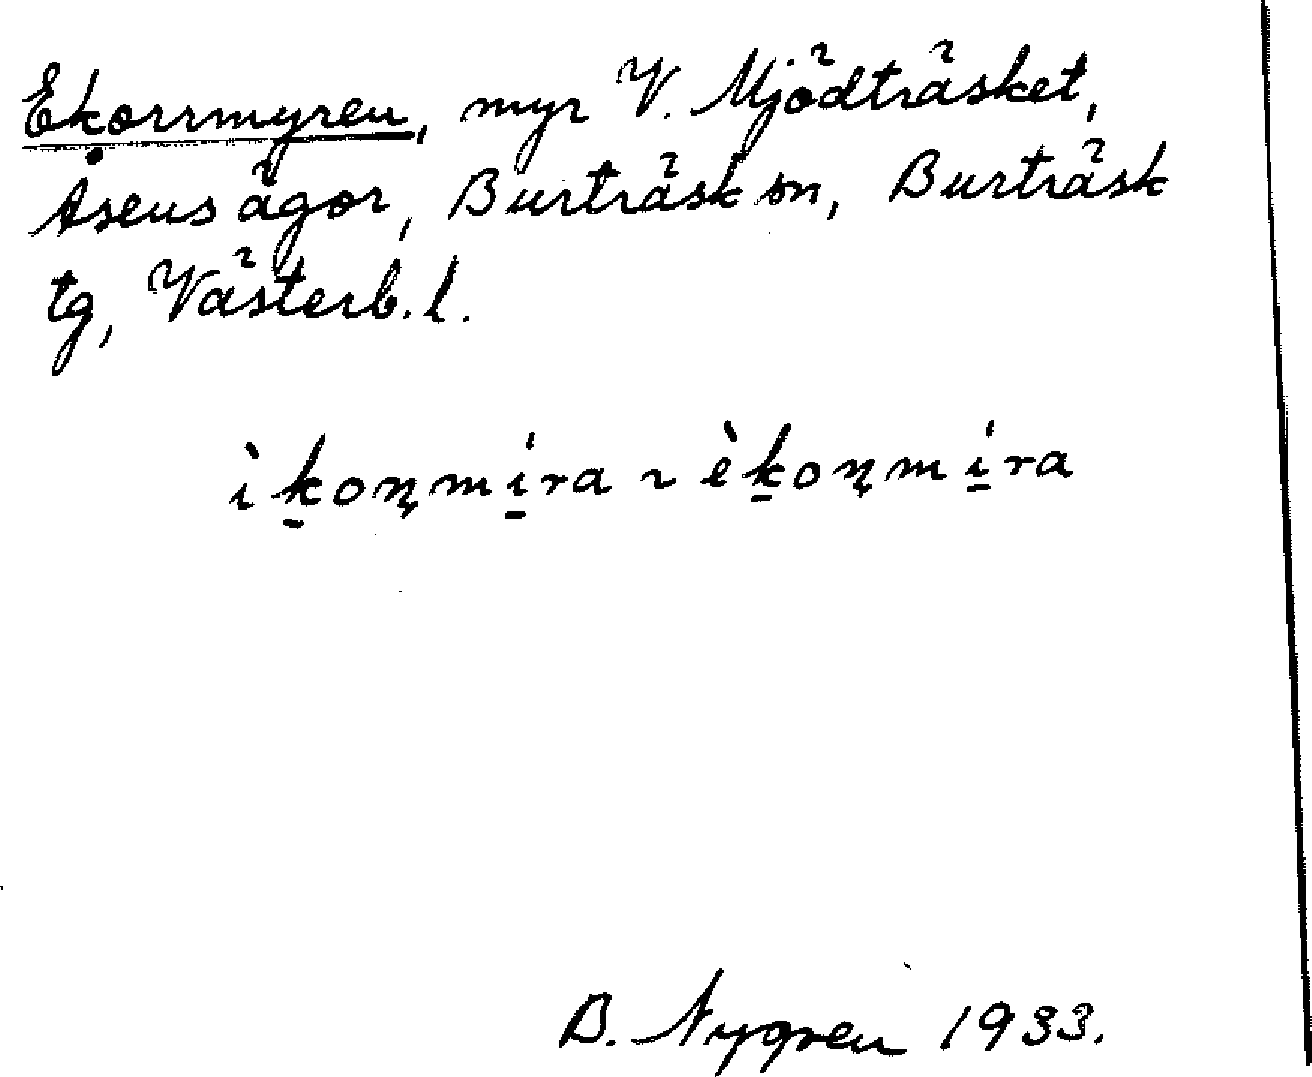 Ekorrmyren, myr V. Mjödträsket,
Åsens ägor, Burträsk sn, Burträsk
tg, Västerb. l.
ìko̱ṇmí̱ra ~ èḵoṇmí̱ra
B. Nygren 1933.